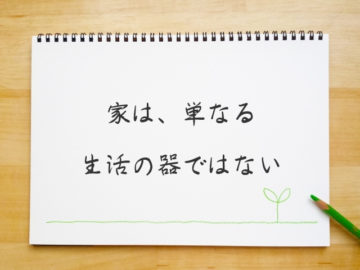 家は、単なる
生活の器ではない